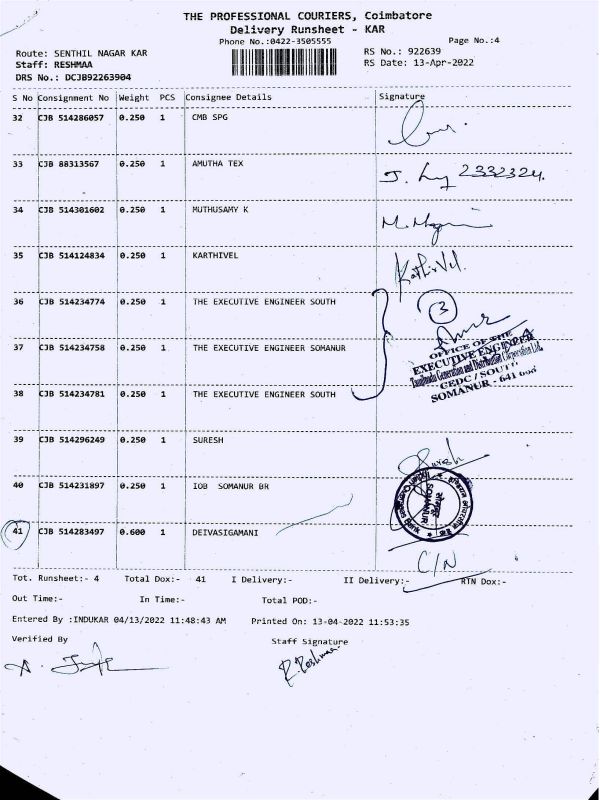 THE PROFESSIONAL COURIERS, Coimbatore
Delivery Runsheet - KAR
Phone No.:0422-3505555
Page No.:4
Route: SENTHIL NAGAR KAR
RS No.: 922639
Staff: RESHMAA
RS Date: 13-Apr-2022
DRS No.: DCJB92263904
S No Consignment No Weight PCS Consignee Details Signature
32 CJB 514286057 0.250 1 CMB SPG
33 CJB 88313567 0.250 1 AMUTHA TEX
2332324.
34 CJB 514301602 0.250 1 MUTHUSAMY K
35 CJB 514124834 0.250 1 KARTHIVEL
KarthiVel.
36 CJB 514234774 0.250 1 THE EXECUTIVE ENGINEER SOUTH
3
37 CJB 514234758 0.250 1 THE EXECUTIVE ENGINEER SOMANUR
OFFICE OF THE
EXECUTIVE ENGINEER
Tamilnadu Generation and Distribution Corporation Ltd.
CEDC / SOUTH
SOMANUR - 641
38 CJB 514234781 0.250 1 THE EXECUTIVE ENGINEER SOUTH
39 CJB 514296249 0.250 1 SURESH
40 CJB 514231897 0.250 1 IOB SOMANUR BR
Indian Overseas Bank
SOMANUR
41 CJB 514283497 0.600 1 DEIVASIGAMANI
C/N
Tot. Runsheet:- 4 Total Dox:- 41 I Delivery:- II Delivery:- RTN Dox:-
Out Time:- In Time:- Total POD:-
Entered By :INDUKAR 04/13/2022 11:48:43 AM Printed On: 13-04-2022 11:53:35
Verified By Staff Signature
R. Reshmaa